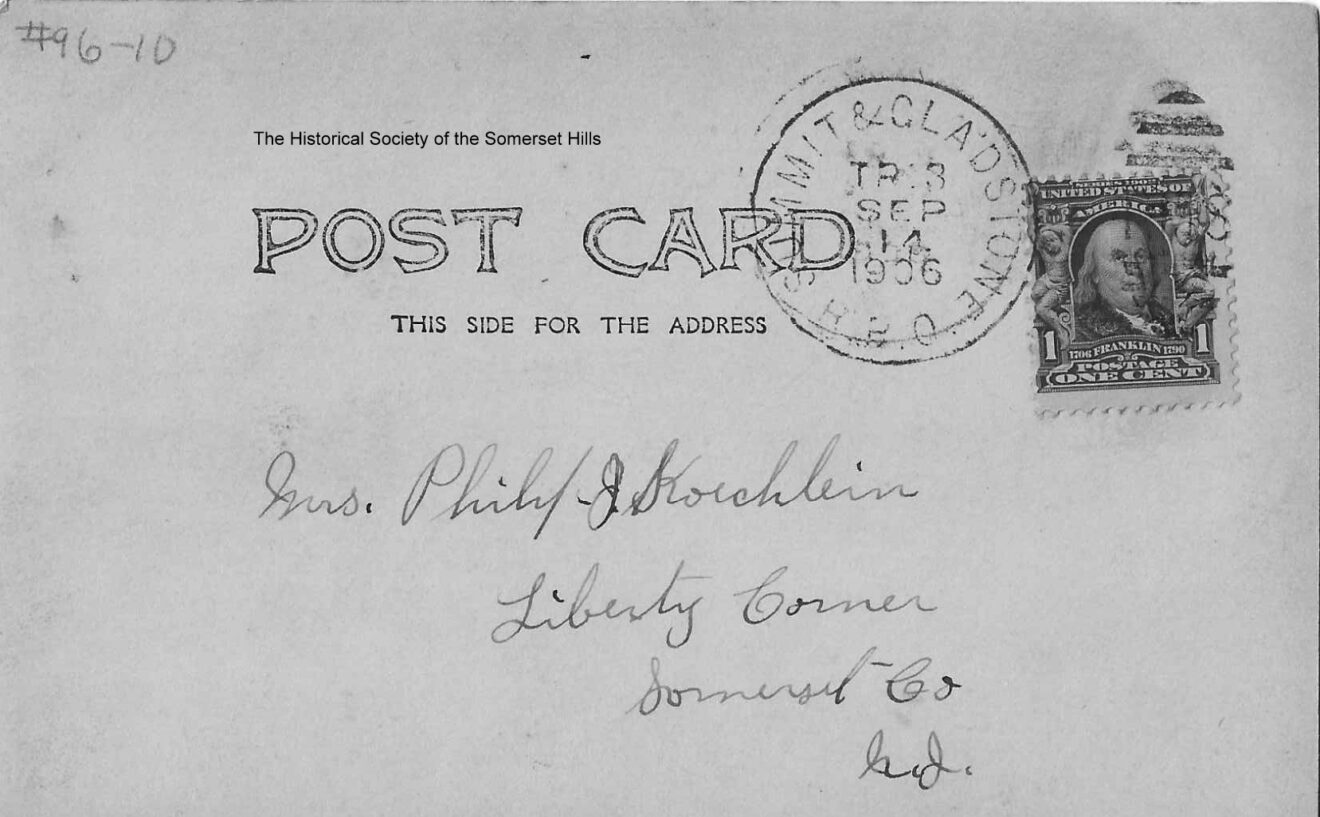 #96-10
The Historical Society of the Somerset Hills
SUMMIT & GLADSTONE
TR 13
SEP
14
1906
R.P.O.
SERIES 1902
UNITED STATES OF
AMERICA
1 1706 FRANKLIN 1790 1
POSTAGE
ONE CENT
POST CARD
THIS SIDE FOR THE ADDRESS
Mrs. Philip J Koechlein
Liberty Corner
Somerset Co
N.J.